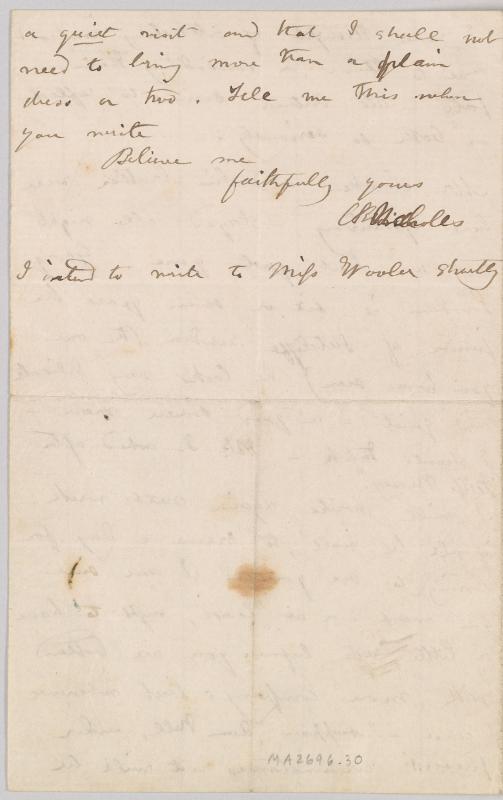 a quiet visit and that I shall not
need to bring more than a plain
dress or two. Tell me this when
you write
Believe me
faithfully yours
CB Nicholls
I intend to write to Miss Wooler shortly
MA2696-30